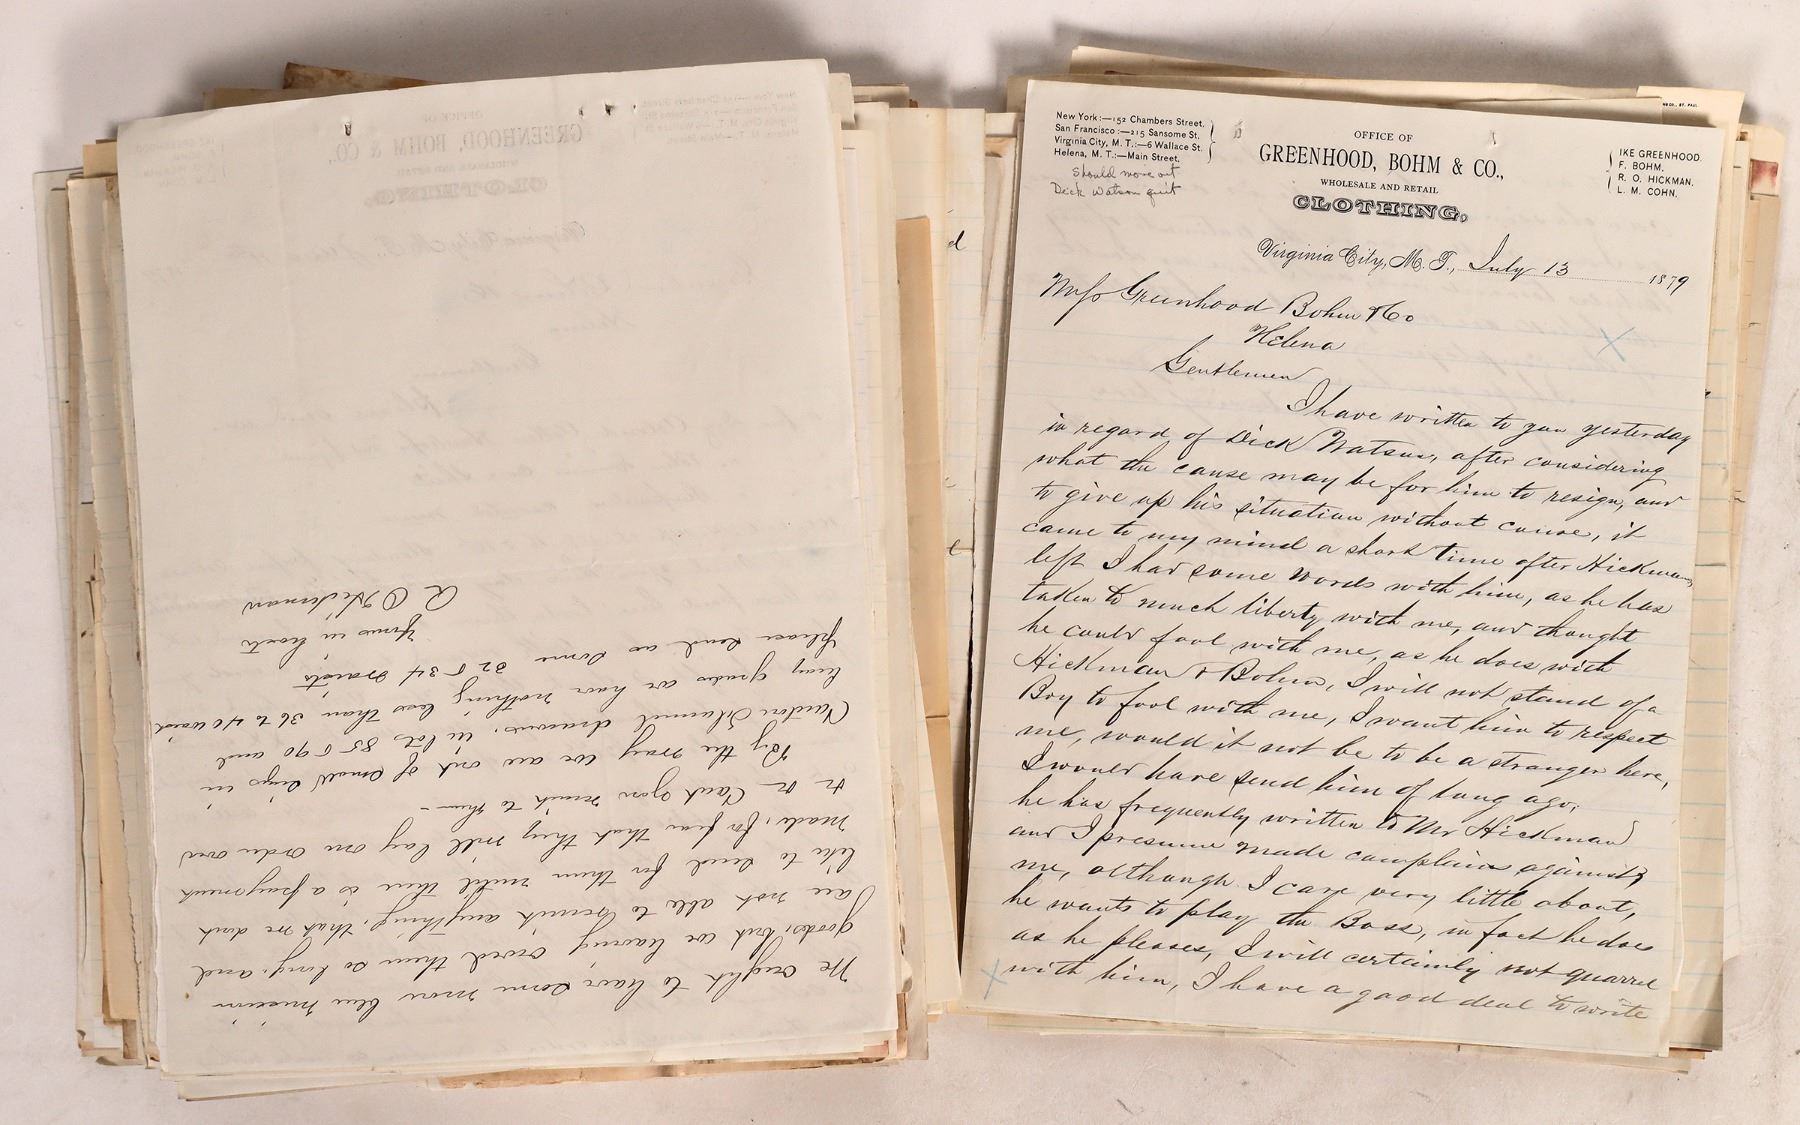 We ought to have some more blue mission
goods, but we having owed them so long, and
are not able to remit anything, that we dont
like to send for them until there is a payment
made, for fear that they will lay our order over
By the way we are out of small sizes in
Canton Flannel drawers, in lots 85 & 90 and
have nothing less than 36 to 40 waist
please send us some 32 & 34 waists
Yours in haste
New York:—152 Chambers Street.
San Francisco:—215 Sansome St.
Virginia City, M. T.:—6 Wallace St.
Helena, M. T.:—Main Street.
Should move out
Dick Watson quit
OFFICE OF
GREENHOOD, BOHM & CO.,
WHOLESALE AND RETAIL
CLOTHING,
IKE GREENHOOD.
F. BOHM.
R. O. HICKMAN.
L. M. COHN.
Virginia City, M. T., July 13 1879
Messrs Greenhood Bohm & Co
Helena
Gentlemen
I have written to you yesterday
in regard of Dick Watson, after considering
what the cause may be for him to resign, and
to give up his situation without cause, it
came to my mind a short time after Hickman
left I had some words with him, as he has
taken to much liberty with me, and thought
he could fool with me, as he does with
Hickman & Bohm, I will not stand of a
Boy to fool with me, I want him to respect
me, would it not be to be a stranger here,
I would have send him of long ago;
he has frequently written to Mr Hickman
and I presume made complains against
me, although I care very little about,
he wants to play the Boss, in fact he does
as he pleases, I will certainly not quarrel
with him, I have a good deal to write